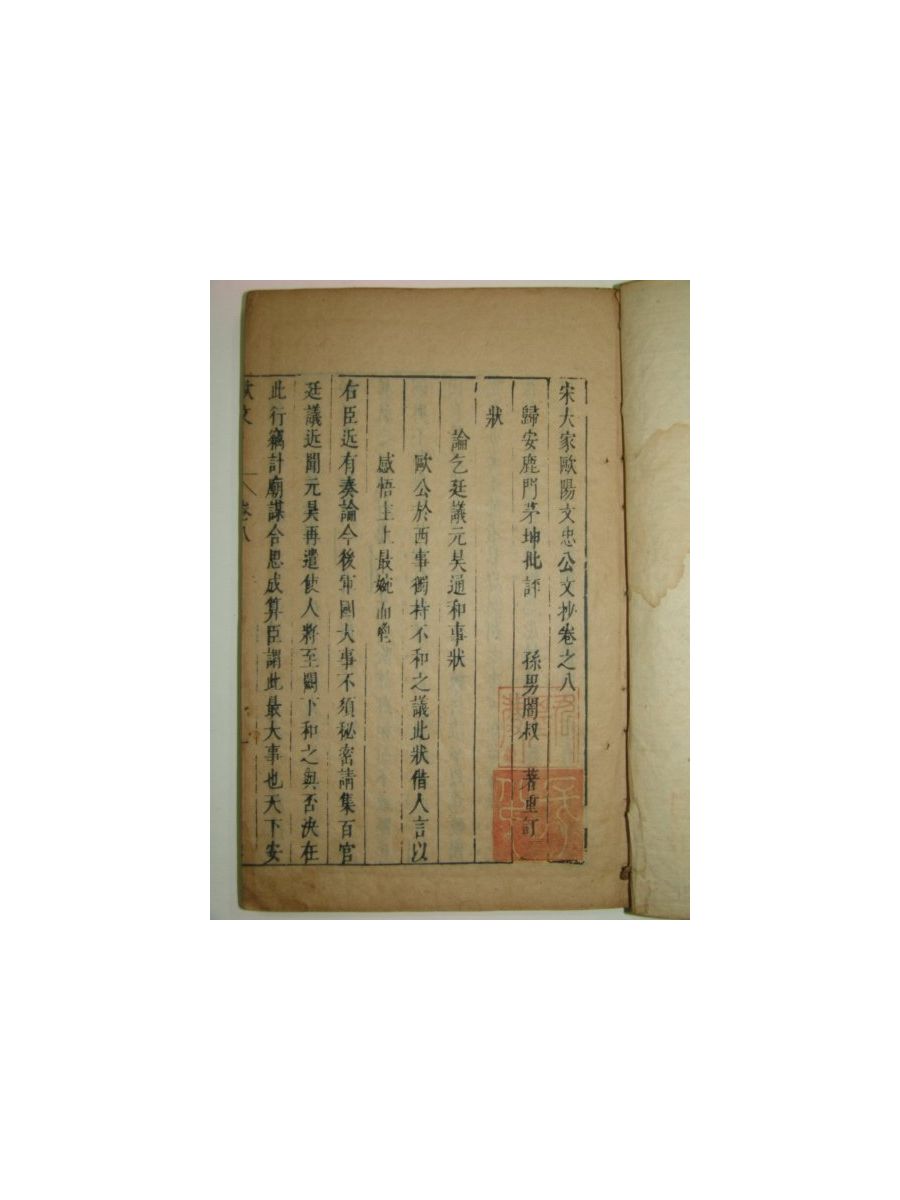 宋大家歐陽文忠公文抄卷之八
歸安鹿門茅坤批評 孫男闇叔 著重訂
狀
論乞廷議元昊通和事狀
歐公於西事獨持不和之議此狀借人言以
感悟主上最婉而鬯
右臣近有奏論今後軍國大事不須秘密請集百官
廷議近聞元昊再遣使人將至闕下和之與否決在
此行竊計廟謀合思成算臣謂此最大事也天下安
歐文 卷八 一